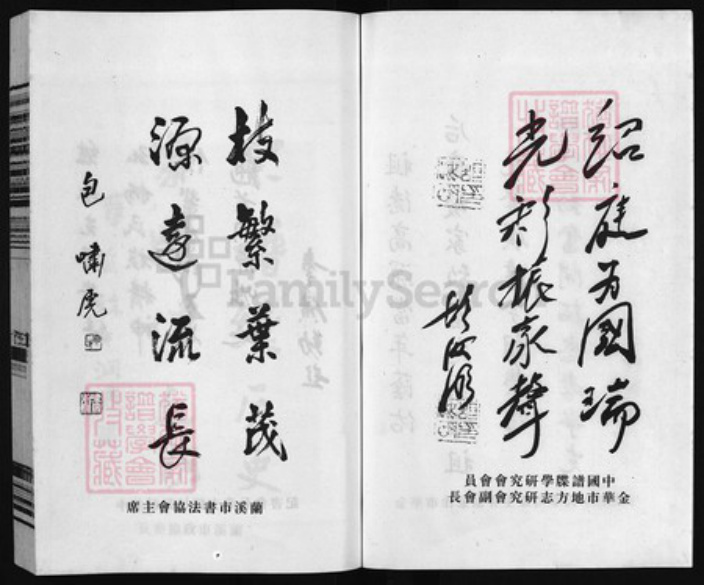 紹庭為國瑞
光彩振家聲
中國譜牒學研究會會員
金華市地方志研究會副會長
枝繁葉茂
源遠流長
包嘯虎
蘭溪市書法協會主席
FamilySearch